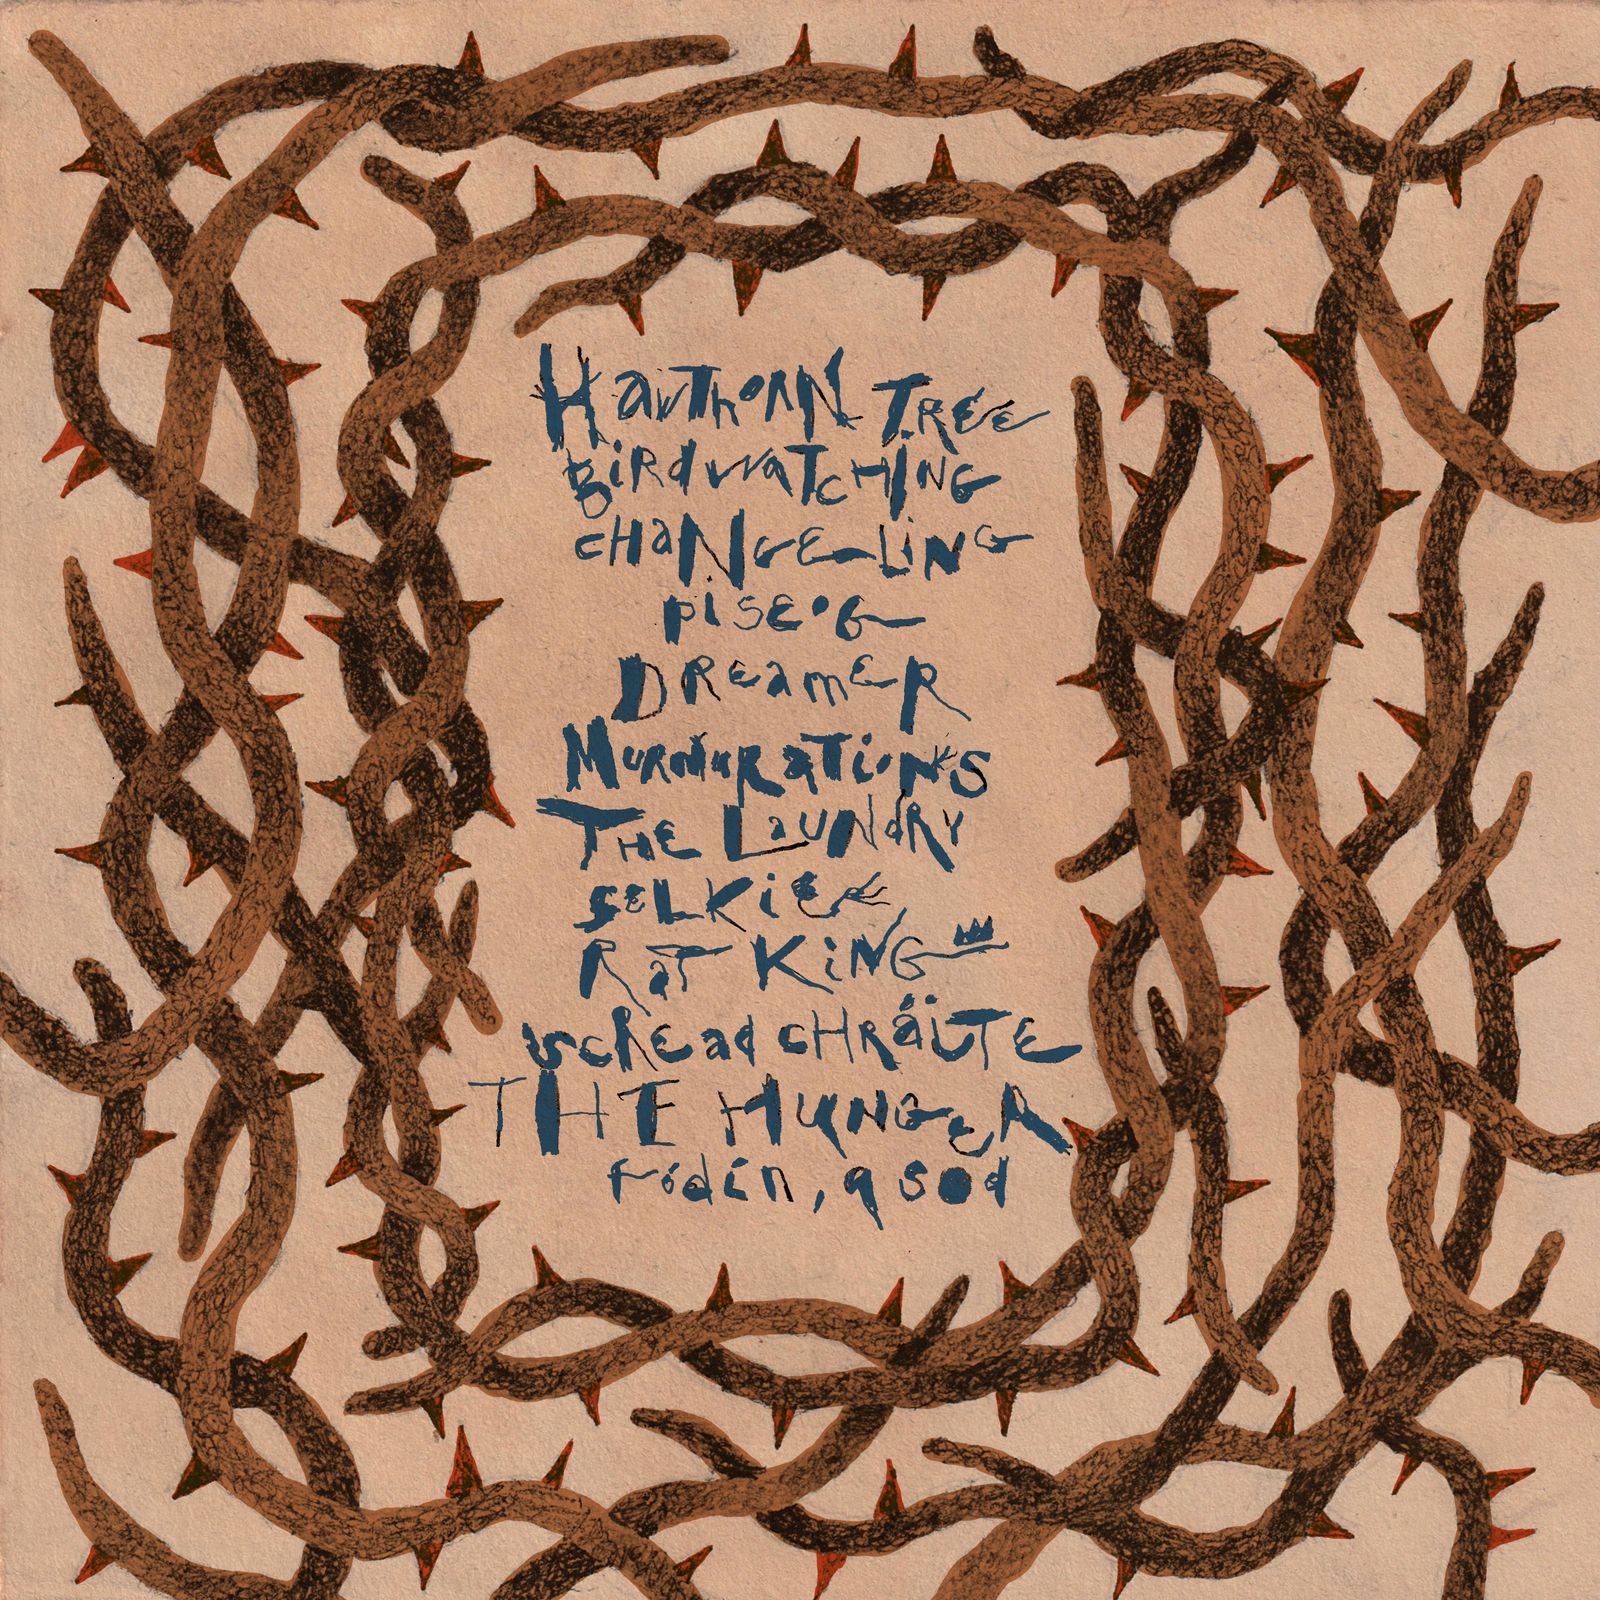 Hawthorn Tree
Birdwatching
Changeling
piseog
Dreamer
Murmurations
The Laundry
Selkie
Rat King
Scread Chráite
The Hunger
fóidín, a sod